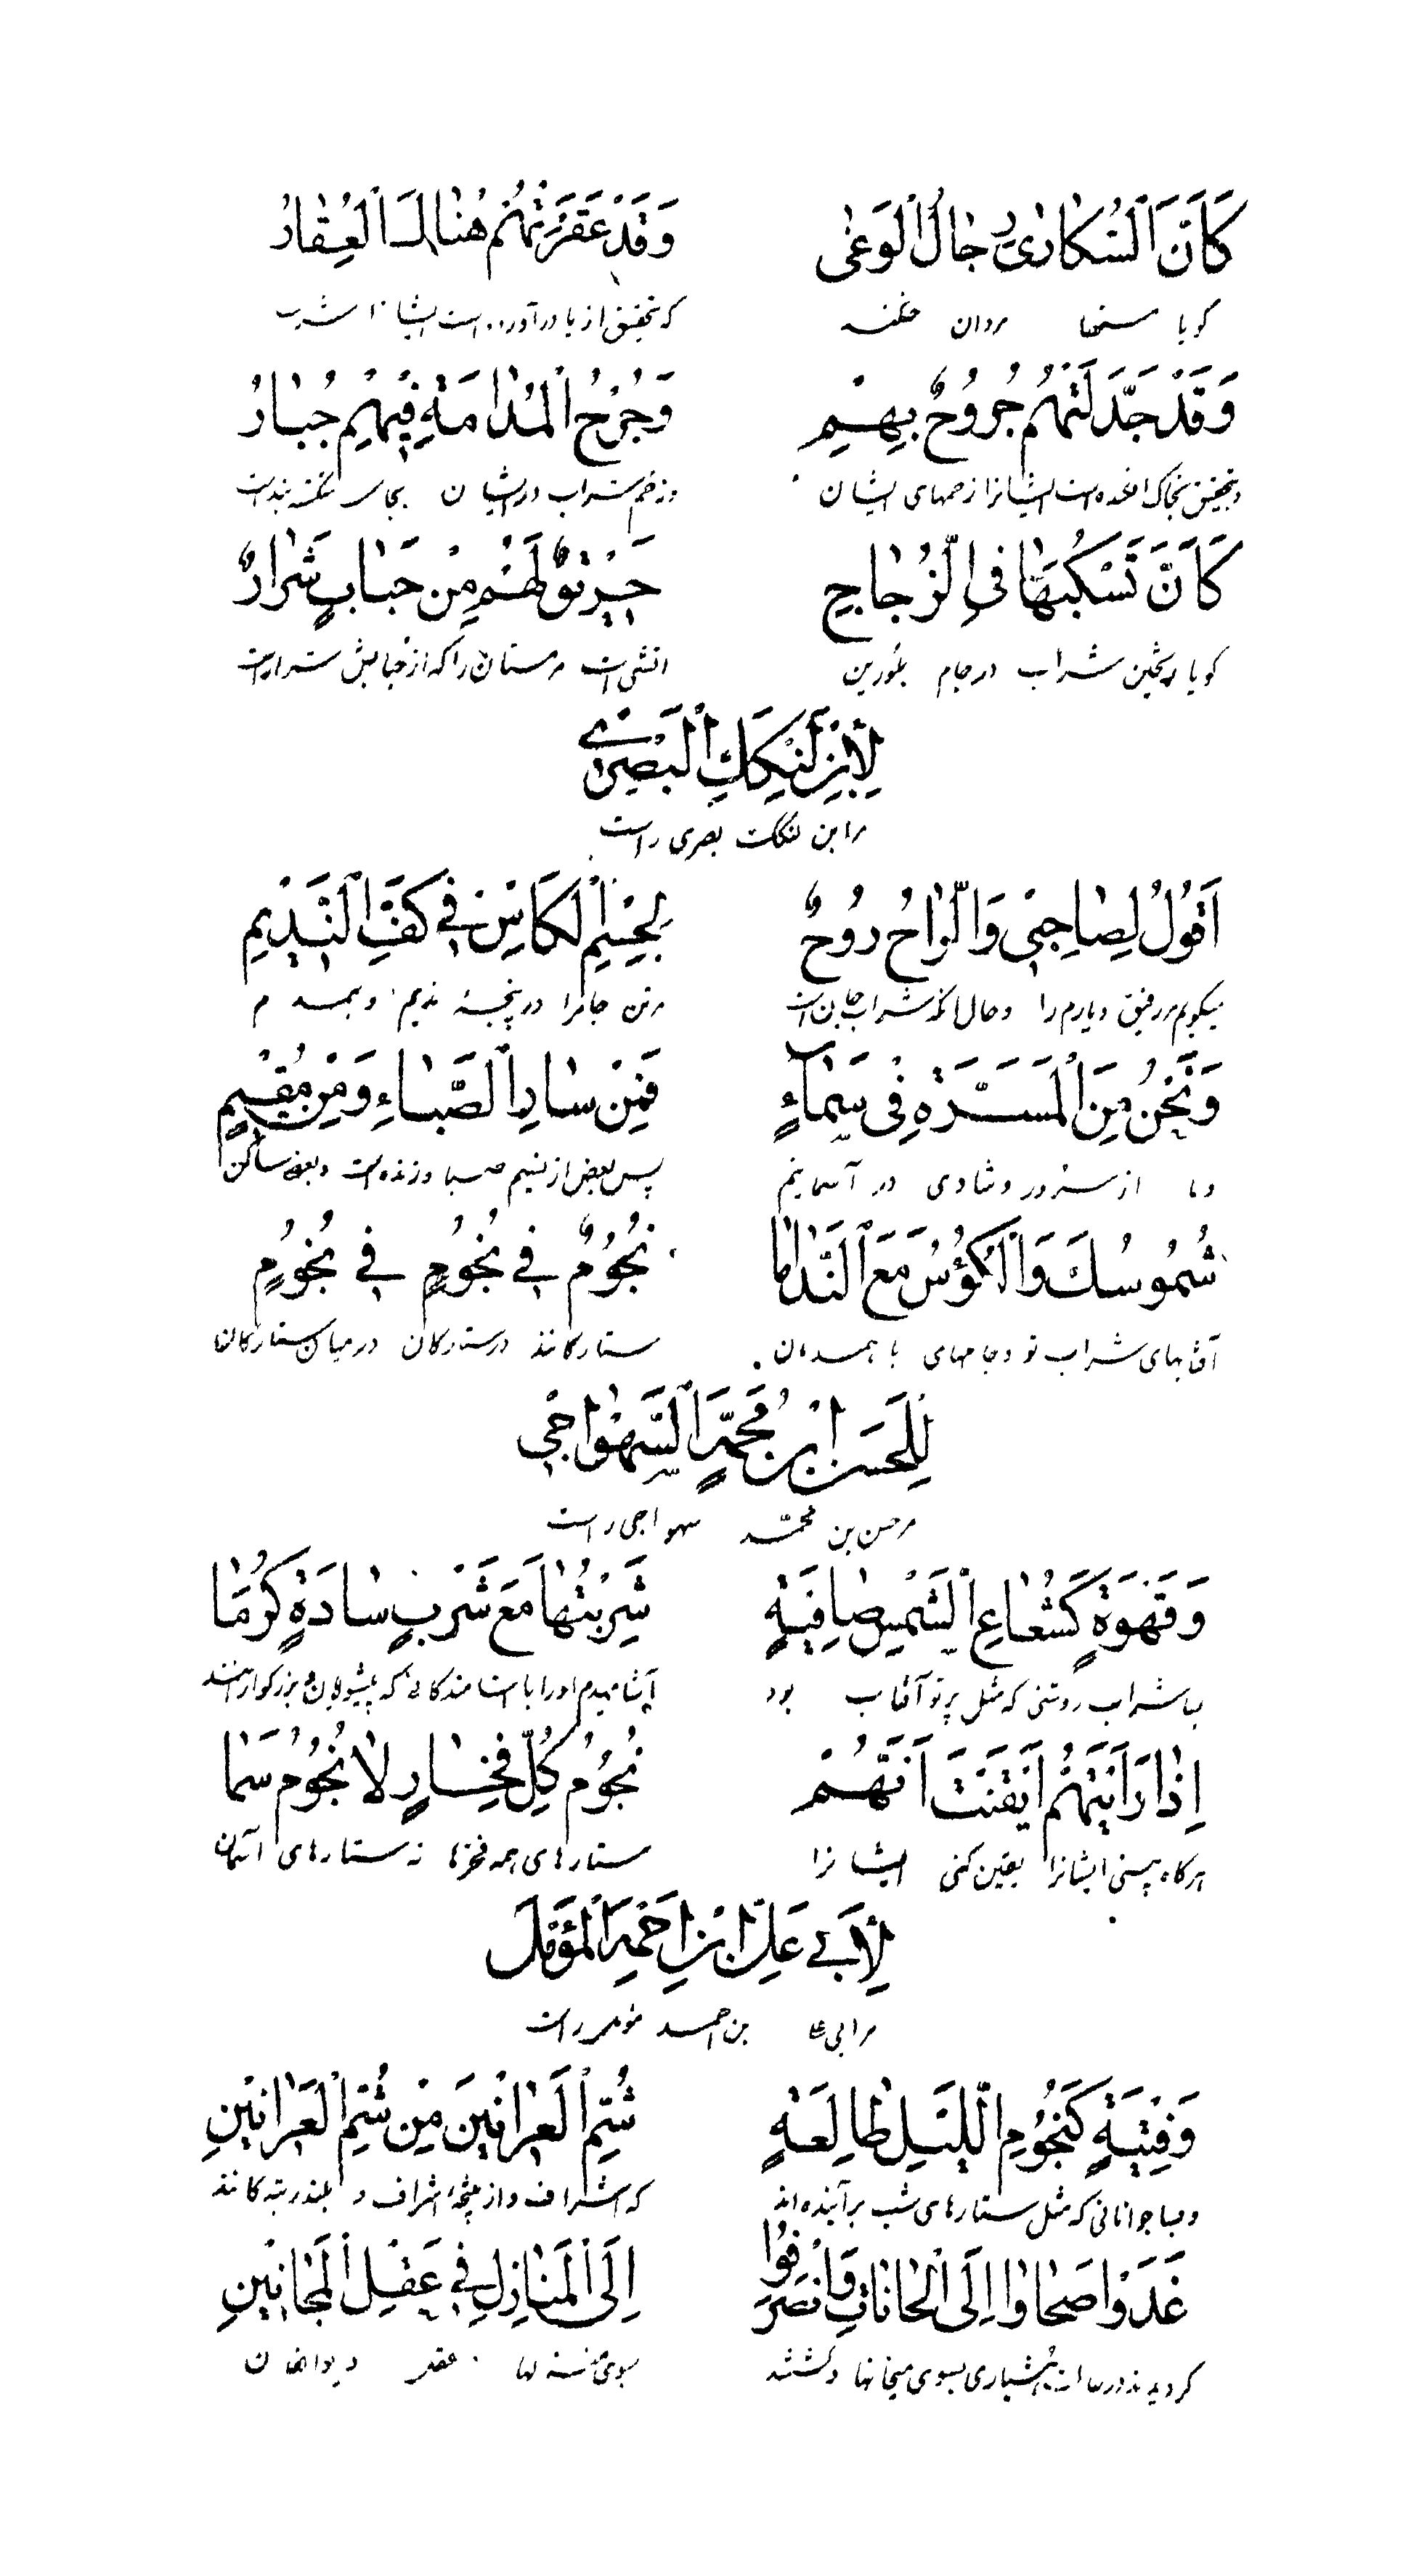 كَاَنَّ السُّكَارىٰ رِجَالُ الْوَغىٰ وَقَدْ عَقَرَتْهُمْ هُنَالِكَ الْعِقَارُ
کویا مستها مردان جنکند که تحقیق از پا درآورده است ایشانرا شراب
وَقَدْ جَدَّلَتْهُمْ جُرُوحٌ بِهِمْ وَجُرْحُ الْمُدَامَةِ فِيهِمْ جُبَارُ
وبتحقیق بخاک افکنده است ایشانرا زخمهای ایشان وزخم شراب در ایشان بجای
كَاَنَّ تَسْكُبَهَا فِى الزُّجَاجِ لَهُمْ مِنْ حَبَابٍ شَرَارٌ
کویا ریختن شراب در جام بلورین مر مستان را که از حبابش شرار است
لِابْنِ لَنْكِكَ الْبَصْرِىّ
مر ابن لنکک بصری راست
اَقُولُ لِصَاحِبِى وَالرَّاحُ رُوحٌ لِجِسْمِ الْكَاْسِ فِى كَفِّ النَّدِيمِ
میکویم مر رفیق ویارم را وحال آنکه شراب جان است مر تن جام را در پنجهٔ ندیم وهمدم
وَنَحْنُ مِنَ الْمَسَرَّةِ فِى سَمَاءٍ فَمِنْ سَارِ الصَّبَاءِ وَمِنْ مُقِيمٍ
وما از سرور وشادی در آسمانیم پس بعض از نسیم صبا وزنده است وبعض ساکن
شُمُوسُكَ وَالْكُؤُسُ مَعَ النَّدَامَا نُجُومٌ فِى نُجُومٍ فِى نُجُومٍ
آفتابهای شراب تو وجامهای با همدمان ستارکانند در ستارکان در میان ستارکان
لِلْحَسَنِ ابْنِ مُحَمَّدٍ السَّهْوَاجِى
مر حسن بن محمّد سهواجی راست
وَقَهْوَةٍ كَشُعَاعِ الشَّمْسِ صَافِيَةٍ شَرِبْتُهَا مَعَ شَرْبٍ سَادَةٍ كُرُمَا
بسا شراب روشنی که مثل پرتو آفتاب بود آشامیدم او را با که پیشوایان وبزرکوارانند
اِذَا رَاَيْتَهُمْ اَيْقَنْتَ اَنَّهُمْ نُجُومُ كُلِّ فَخَارٍ لَا نُجُومُ سَمَا
هرکاه ببینی ایشانرا یقین کنی ایشانرا ستارهای همه فخرها نه ستارهای آسمان
لِاَبِى عَلِىِّ ابْنِ اَحْمَدَ الْمُؤَمَّلَ
مر ابی علی بن احمد مؤمل راست
وَفِتْيَةٍ كَنُجُومِ اللَّيْلِ طَالِعَةٍ شُمِّ الْعَرَانِينَ مِنْ شُمِّ الْعَرَانِينِ
وبسا جوانانی که مثل ستارهای شب برآینده‌اند که اشراف واز اشراف و بلند رتبه کانند
غَدَوْا صَحَاوَا اِلَى الْحَانَاتِ وَانْصَرَفُوا اِلَى الْمَنَازِلِ فِى عَقْلِ الْمَجَانِينِ
کردیدند در هشیاری بسوی میخانها وکشتند بسوی منزلها عقل دیوانکان